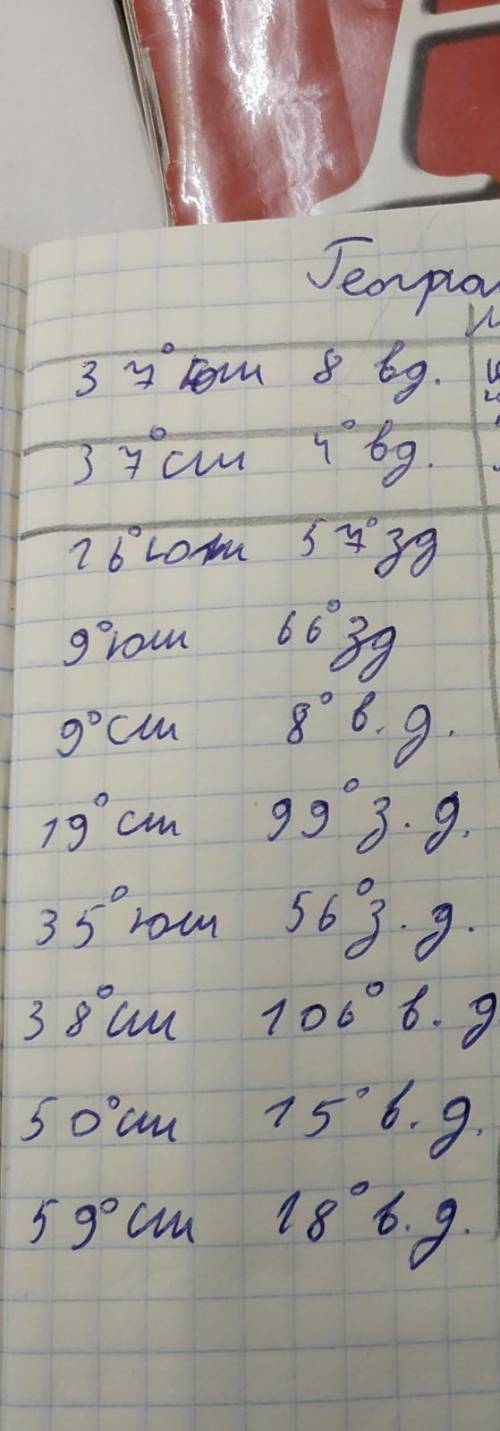 37° юш 8 вд.
37° сш 4° вд.
16° юш 57° зд
9° юш 66° зд
9° сш 8° в.д.
19° сш 99° з.д.
35° юш 56° з.д.
38° сш 106° в.д
50° сш 15° в.д.
59° сш 18° в.д.